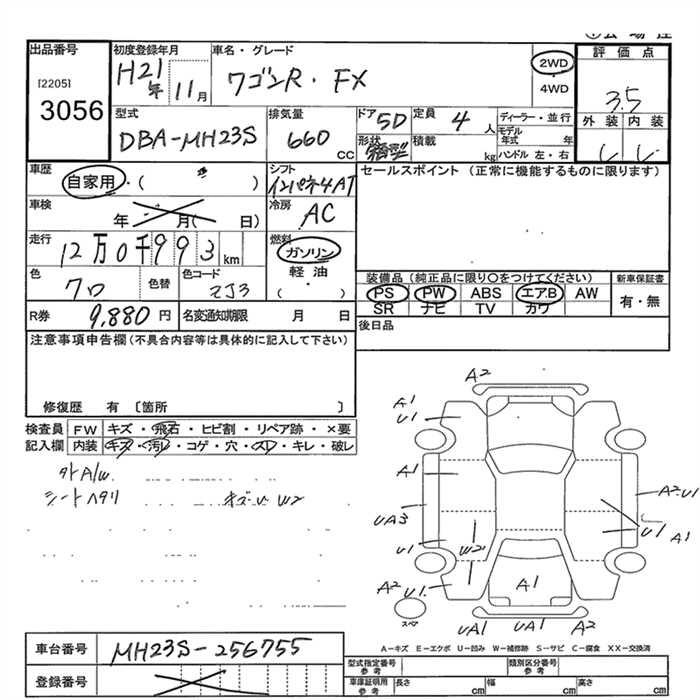 出品番号
[2205]
3056
初度登録年月
H21年 11月
車名・グレード
ワゴンR・FX
2WD
4WD
評価点
3.5
外装 内装
型式
DBA-MH23S
排気量
660 CC
ドア 5D
形状
定員 4 人
積載 kg
ディーラー・並行
モデル年式 年
ハンドル 左・右
車歴
自家用・( )
シフト
インパネ4AT
セールスポイント (正常に機能するものに限ります)
車検
年 月( 日)
冷房
AC
走行
12万0千993km
燃料
ガソリン
軽油
( )
色
クロ
色替
色コード
ZJ3
装備品(純正品に限り○をつけてください)
PS PW ABS エアB AW
SR ナビ TV カワ
新車保証書
有・無
R券
9,880 円
名変通知期限 月 日
後日品
注意事項申告欄(不具合内容等は具体的に記入して下さい)
修復歴 有 〔箇所 〕
検査員
記入欄
FW キズ・飛石・ヒビ割・リペア跡・×要
内装 キズ・汚レ・コゲ・穴・スレ・キレ・破レ
外A/W
シートヘタリ
W2
A2
A1
U1
A1
UA3
U1
W2
A2・U1
U1
A1
A2
U1
A1
スペア
UA1 UA1 A2
A-キズ E-エクボ U-凹み W-補修跡 S-サビ C-腐食 XX-交換済
車台番号
MH23S-256755
登録番号
型式指定番号
参考
類別区分番号
参考
車庫証明用
参考
長さ cm
幅 cm
高さ cm